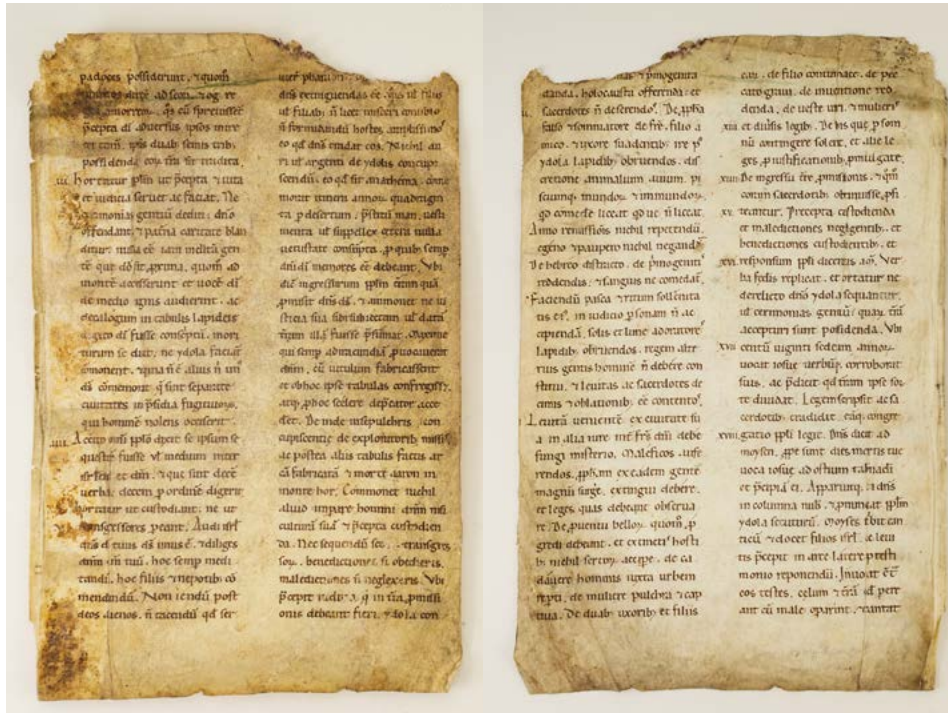 padoces possiderunt, ⁊ quom
ad seon, ⁊ og re
q̄ cū sprevisset
p̄cepta dī adversus ipsos inire
ipsis duab; semis trib;
possidenda eoꝝ tr̄a sit tradita.
Hortatur pl̄m ut p̄cepta ⁊ iura
et iudicia servet ac faciat. Ne
cerimonias gentiū dedin dn̄o
offendant. ⁊ pat̄na caritate blan
ditur. nulla eē tam inclitā gen
tē que dō sit proxima, quom ad
montē accesserunt et vocē dī
de medio ignis audierint. ac
decalogum in tabulis lapideis
digito dī fuisse conscriptū. mori
turum se dicit. ne ydola faciat
cōmonent. ⁊ quia n̄ ē alius n̄ un'
ds̄ cōmemorat q̄ sint separate
civitates in p̄sidia fugitivoꝝ,
qui hominē nolens occiserit.
Accito oms̄i pp̄lo dicit se ipsum se
questrē fuisse vl̄ medium inter
isr̄lem et dm̄. ⁊ que sint dece
verba. decem p̄ ordinē digerit
hortatur ut custodiant. ne ut
transgressores pereant. Audi isrl̄
dn̄s d̄s tuus ds̄ unus ē. ⁊ diliges
dn̄m dm̄ tuū. hoc semp medi
tandū. hoc filiis ⁊ nepotib; cō
mendandū. Non iendū post
deos alienos. n̄ tacendū qd ser
dn̄s extinguendas eē. q̄ ul filiis
ul filiab; n̄ licet misceri consorcio
n̄ formidandū hostes, amplissimo'
eo qd dn̄s tradat eos. Nichil au
ri ul argenti de ydolis concupi
scendū. eo qd sit anathema. com
monit inueni annoꝝ quadragin
ta p̄ desertum. p̄stitū man. uesti
menta ul suppellex cetera nulla
vetustate consūpta. p quib; semp
dn̄i dī memores eē debeant. Ubi
dic̄ ingressurum ipsm terrā quā
p̄misit dn̄s ds̄. ⁊ ammonet ne iu
sticia sua sibi subiectam ul datā
terram illā fuisse p̄sumat. Maxime
qui semp ad iracundiā provocaverit
dm̄. cū vitulum fabricassent
et ob hoc ipse tabulas confregisset.
atq; p hoc scelere dep̄cator acce
sset. De inde in sepulchris con
cupiscentie de exploratorib; missis
ac postea aliis tabulis factis ar
cā fabricatā ⁊ morte aaron in
monte hor. Commonet nichil
aliud imp̄are homini dn̄m nisi
culturā suā ⁊ p̄cepta custodien
da. Nec sequendū sec̄. ⁊ transgres
soꝝ. benedictiones si obedieris.
maledictiones si neglexeris. Ubi
p̄cepit q̄ in tr̄a p̄missi
onis debeant fieri. ydola con
p̄mogenita
danda. holocausta offerenda. et
sacerdotes n̄ deserendos. De pp̄ha
falso ⁊ somniatore de frē. filio a
mico. ⁊ uxore suadentib; ire p'
ydola lapidib; obruendos. dis
cretione animalium avium. pi
sciumq; mundoꝝ ⁊ inmundoꝝ
qd comede liceat qd ve n̄ liceat.
Anno remissionis nichil repetendū.
egeno ⁊ paup̄o nichil negandū.
De hebreo distracto. de p̄mogeniti'
reddendis. ⁊ sanguis ne comedat'.
Faciendū pasca ⁊ trium sollenita
tis es'. in iudicio p̄sonam n̄ ac
cipiendā. solis et lune adoratores
lapidib; obruendos. regem alte
rius gentis hominē n̄ debere con
stitui. ⁊ levitas ac sacerdotes de
cimis ⁊ oblationib; eē contentos'.
Levitā venientē ex civitate su
a in alia iure inē fr̄s om̄i debe
fungi misterio. Maleficos aufe
rendos. pp̄ham ex eadem gente
magnū surgē. extingui debere.
et leges quas debeant observa
re. De p̄ventu belloꝝ. quom p
gredi debeant. et extincti' hosti
b; nichil servoꝝ accipe. de ca
davere hominis iuxta urbem
repti. de muliere pulchra ⁊ cap
tiva. De duab; uxorib; et filiis
eaꝝ. de filio contumace. de pec
cato graui. de inventione red
denda. de veste viri ⁊ mulieris
et diversis legib;. De his que p som
nū contingere solent. et alie le
ges p iustificationib; p̄mulgate.
xiiii De ingressu terre p̄missionis. ⁊ qm̄
coram sacerdotib; obtinuisse, pfi
xv teantur. Precepta custodienda
et maledictiones negligentib;. et
benedictiones custodientib;. et
xvi responsum pp̄li dicentis am̄. Ver
ba fedis replicat. et ortatur ne
derelicto dn̄o ydola sequantur.
ul cerimonias gentiū quaꝝ tr̄ā
accepturi sunt possidenda. Ubi
xvii centū viginti sedeam annoꝝ.
vocat iosue verbisq; corroborat
suis. ac p̄dicit qd tr̄am ipse sor
te dividat. Legem scripsit ac sa
cerdotib; tradidit. eāq; congre
xviii gatio pp̄li legit. Dn̄s dicit ad
moysen. ppe sunt dies mortis tue
voca iosue ad ostium tabn̄adi
et p̄cipiā ei. Apparuitq; ei dn̄s
in columna nub;. ⁊ pnuntiat ppl̄m
ydola secuturū. Moyses scribit can
ticū ⁊ docet filios isrl̄. ⁊ levi
tis p̄cepit in arce latere p testi
monio reponendū. Invocat
eos testes. celum ⁊ tr̄ā qd pere
ant cū male operint. ⁊ cantat